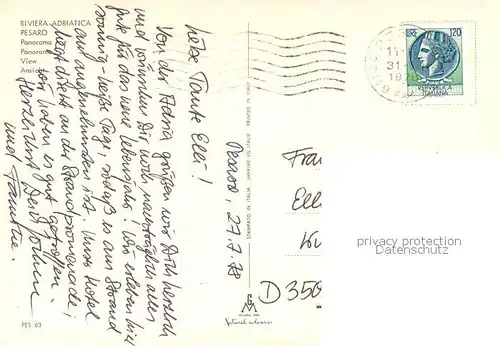 RIVIERA ADRIATICA
PESARO
Panorama
Panorama
View
Ansicht
Pesaro, 27.7.78
Liebe Tante Elli!
Von der Adria grüßen wir Dich herzlich
und wünschen Dir noch nachträglich alles
Gute für das neue Lebensjahr. Wir erleben hier
sonnig-heiße Tage, sodaß es am Strand
am angenehmsten ist. Unser Hotel
liegt direkt an der Strandpromenade,
wir haben es gut getroffen.
Herzlichst Dein Jochen
und Familie.
PES 63
STAMPATO IN ITALIA IMPRIME EN ITALIE PRINTED IN ITALY
Natural colours
LIRE 120
REPUBBLICA
ITALIANA
31-
1978
Frau
Elli
D 350
privacy protection
Datenschutz